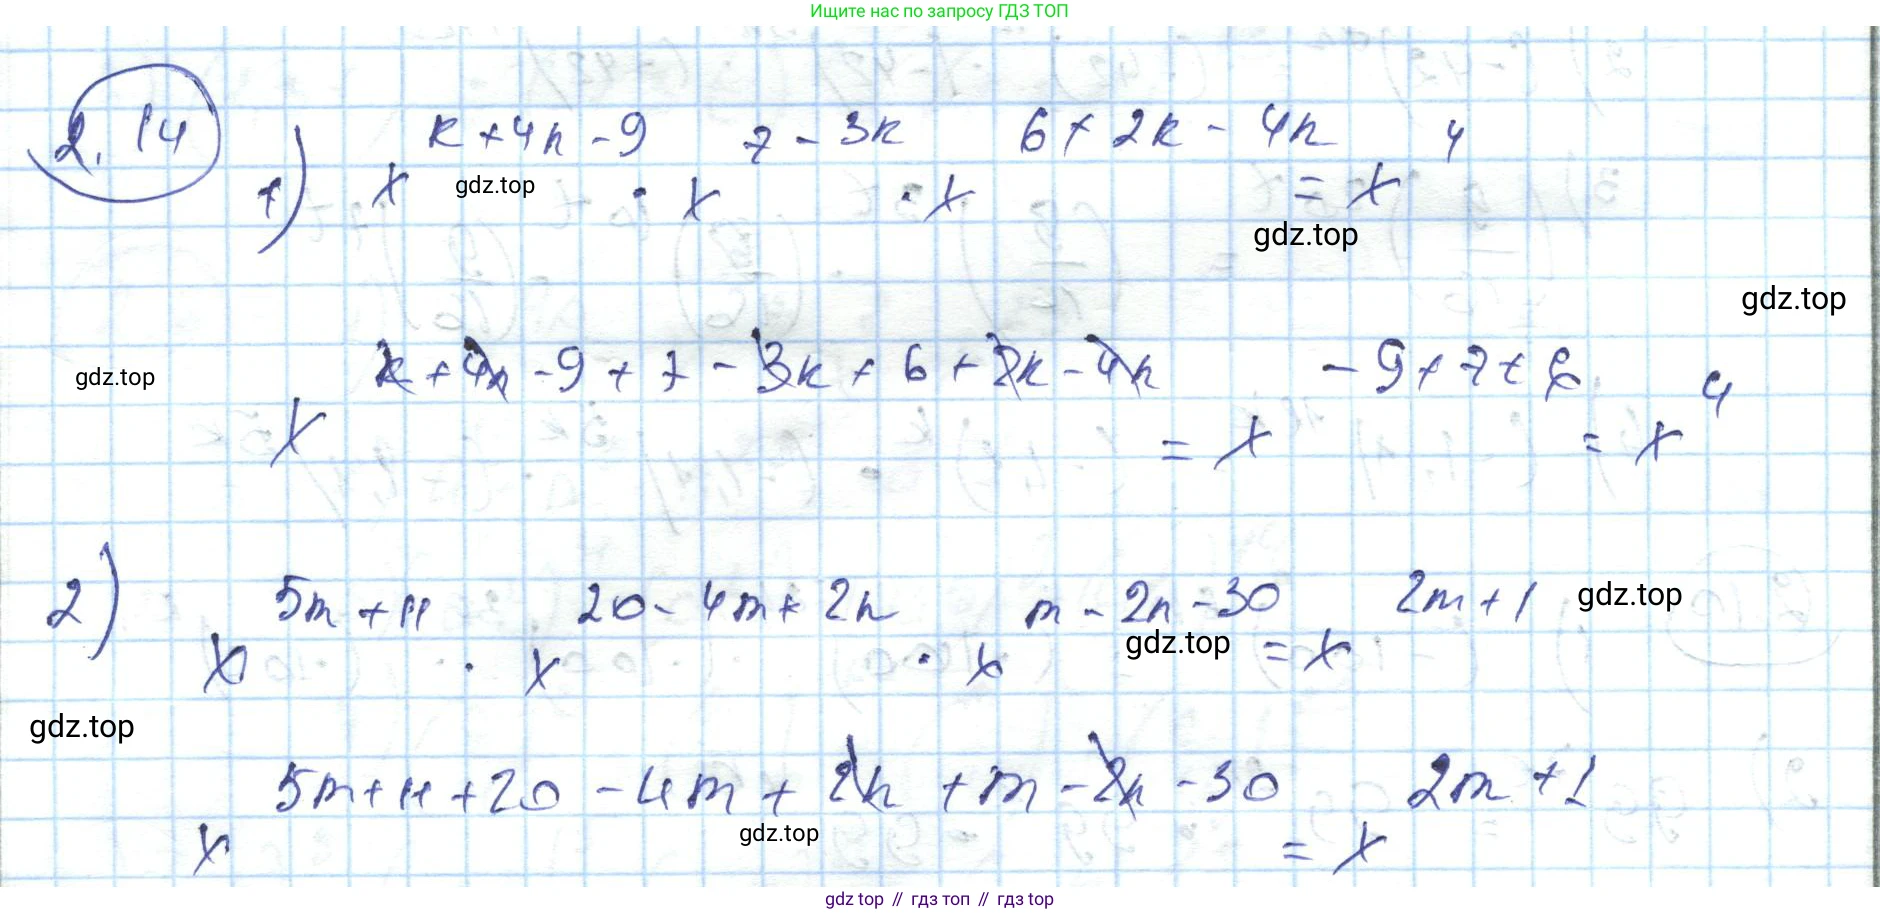 Ищите нас по запросу ГДЗ ТОП
2.14
1) x^(k+4n-9) · x^(7-3k) · x^(6+2k-4n) = x^4
gdz.top
gdz.top
gdz.top
gdz.top
x^(k+4n-9+7-3k+6+2k-4n) = x^(-9+7+6) = x^4
2) x^(5m+11) · x^(20-4m+2n) · x^(m-2n-30) = x^(2m+1)
gdz.top
gdz.top
gdz.top
x^(5m+11+20-4m+2n+m-2n-30) = x^(2m+1)
gdz.top
gdz top // гдз топ // gdz top